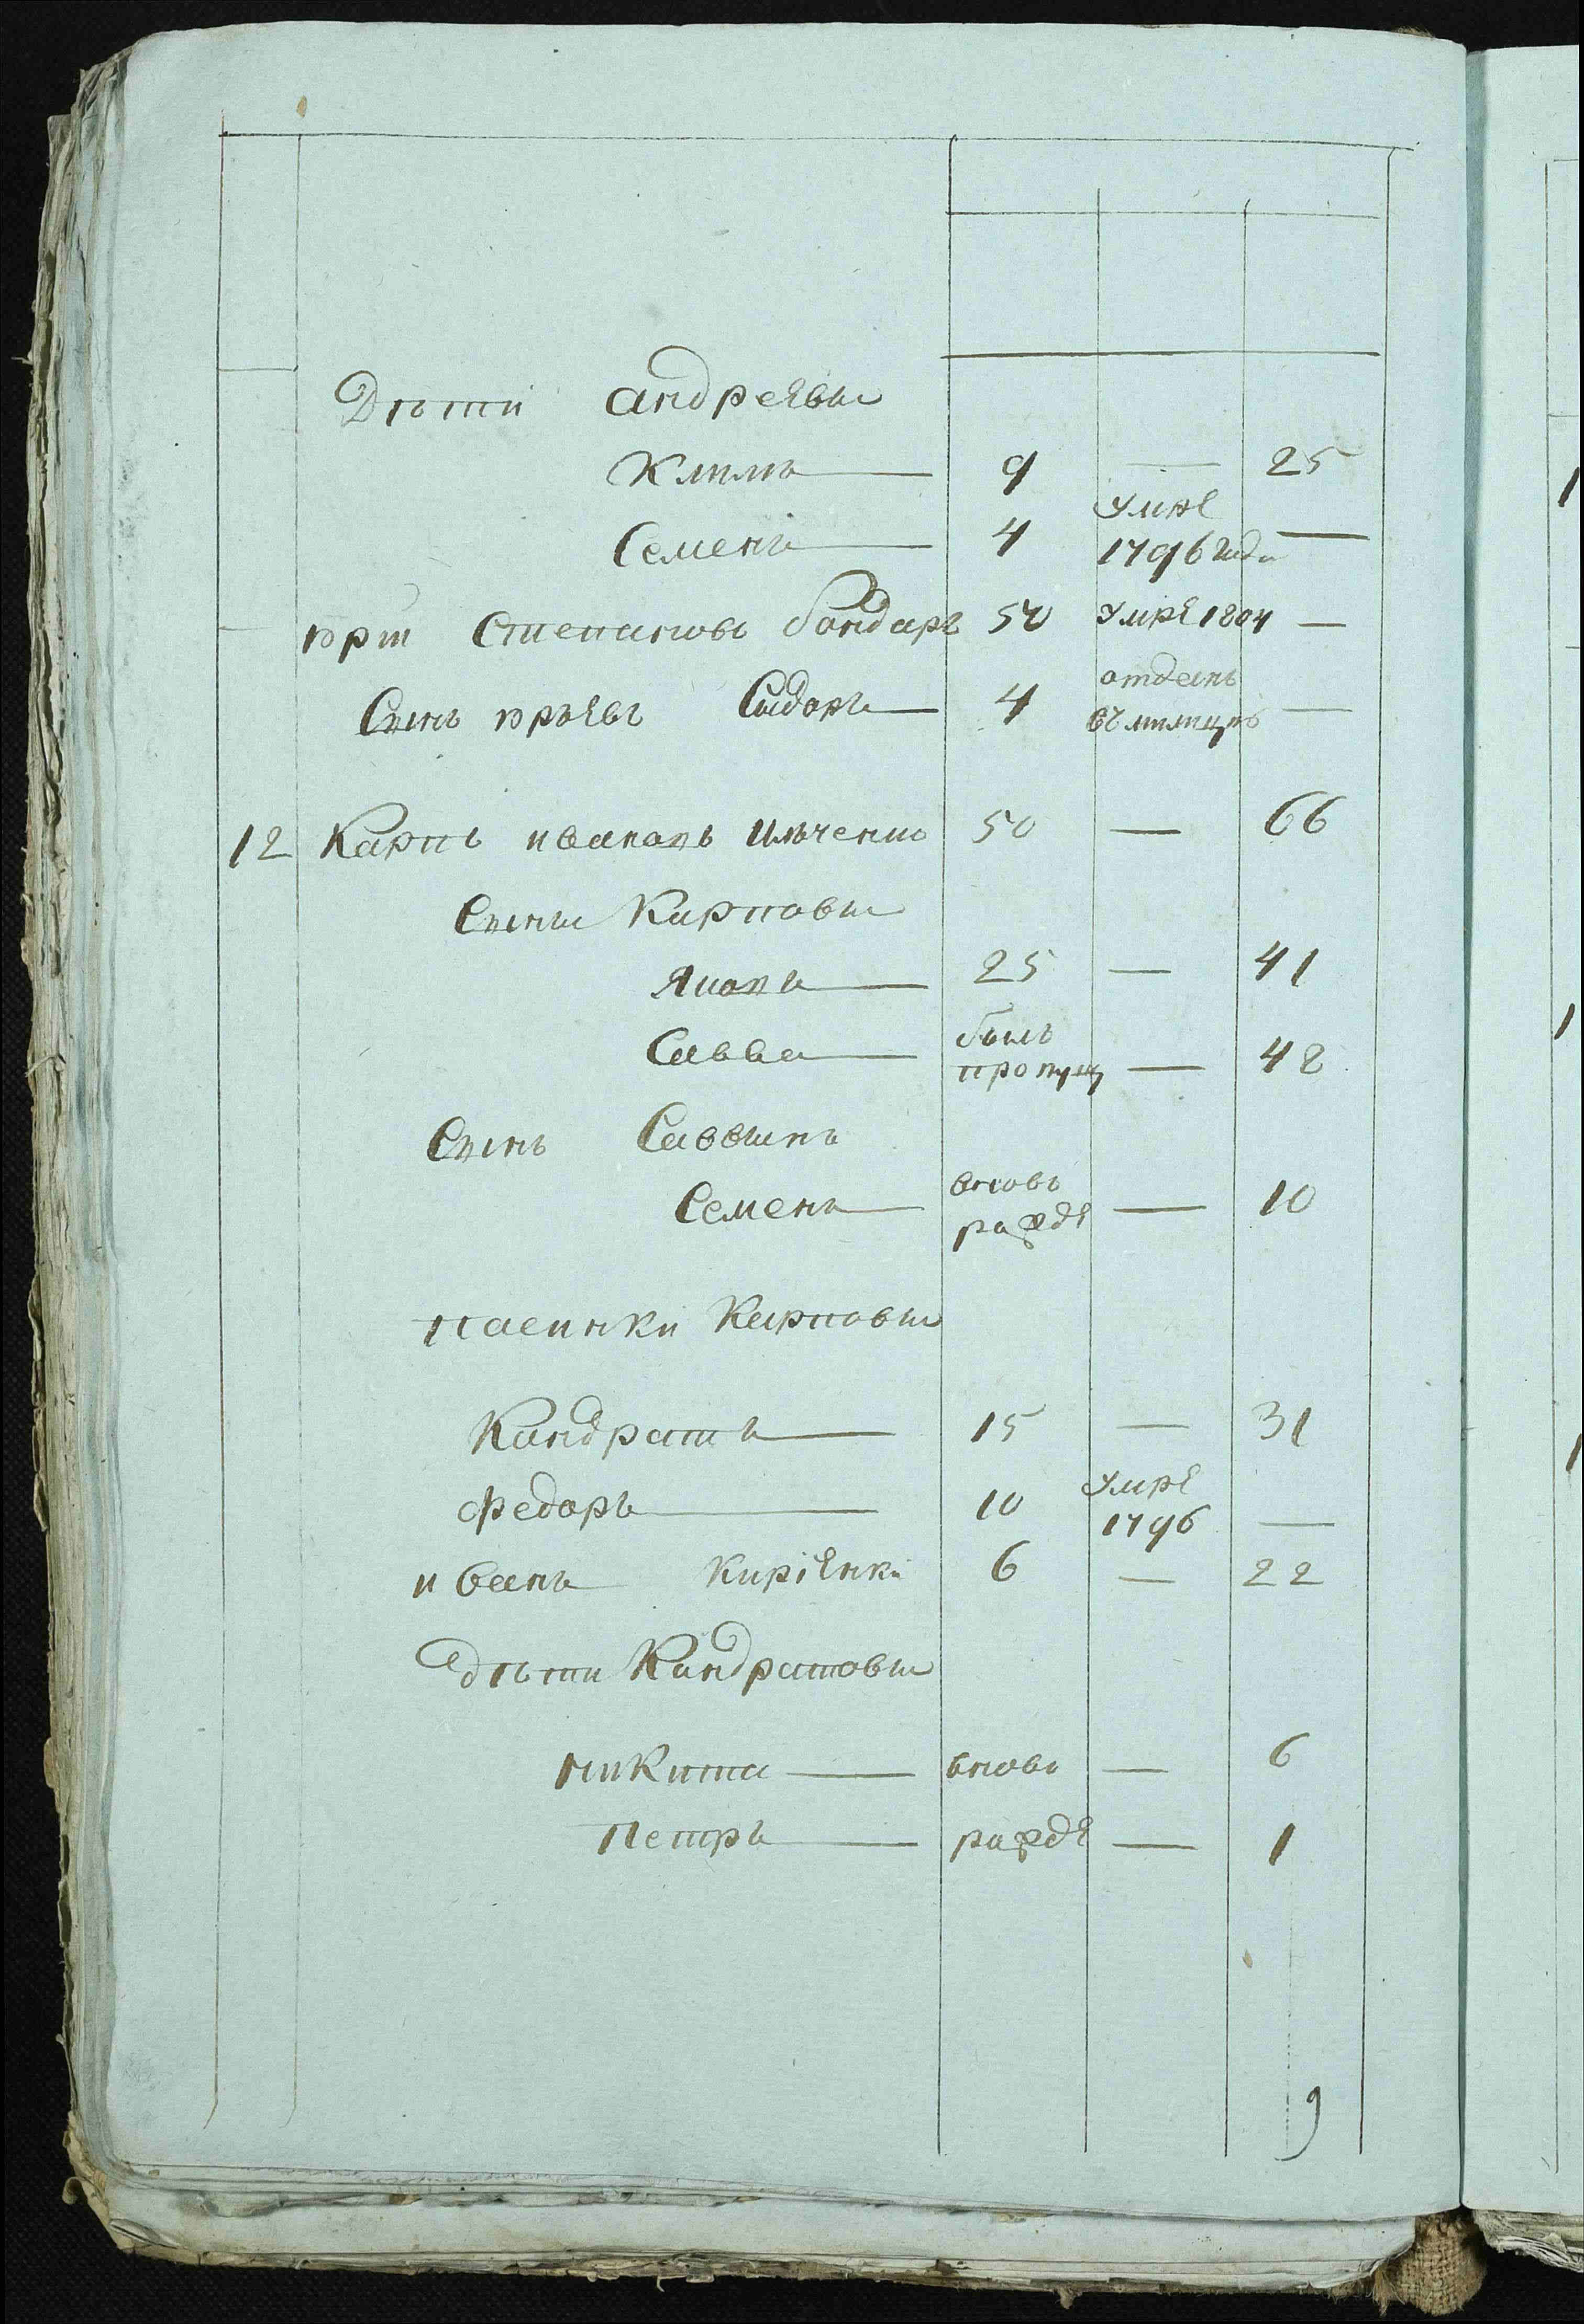 Дѣти андреевы
Климъ — 9 — 25
Семенъ — 4 умре 1796 года —
юрій Степановъ бондарь 50 умре 1804 —
Сынъ юрьевъ Сидоръ — 4 отданъ въ милицию —
12 Карпъ ивановъ Ильченко 50 — 66
Сыны Карповы
Яковъ — 25 — 41
Савва — былъ пропущ — 42
Сынъ Саввинъ
Семенъ — вновь рожде — 10
пасинки Карповы
Кондратъ — 15 — 31
Федоръ — 10 умре 1796 —
иванъ Киріенки 6 — 22
дѣти Кондратовы
никита — вновь — 6
Петръ — рожде — 1
9